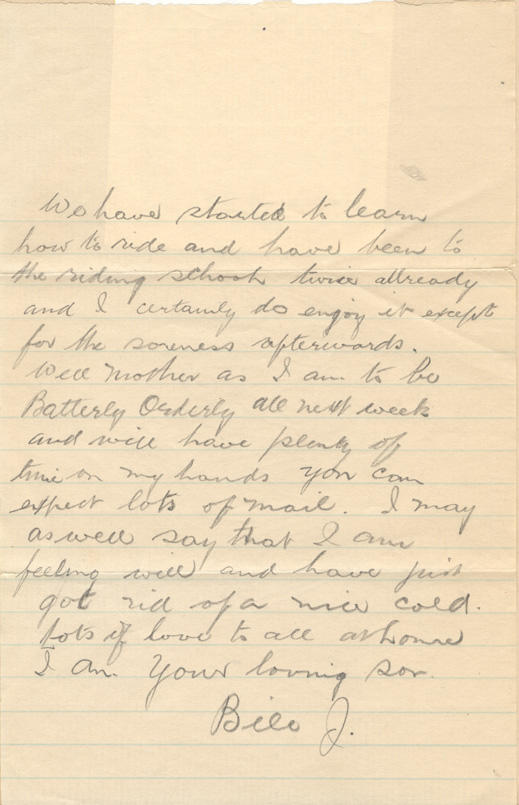 We have started to learn
how to ride and have been to
the riding school twice allready
and I certainly do enjoy it except
for the soreness afterwards.
Well Mother as I am to be
Batterly Orderly all next week
and will have plenty of
time on my hands you can
expect lots of mail. I may
as well say that I am
feeling well and have just
got rid of a nice cold.
Lots of love to all at home
I am. Your loving son.
Bill J.